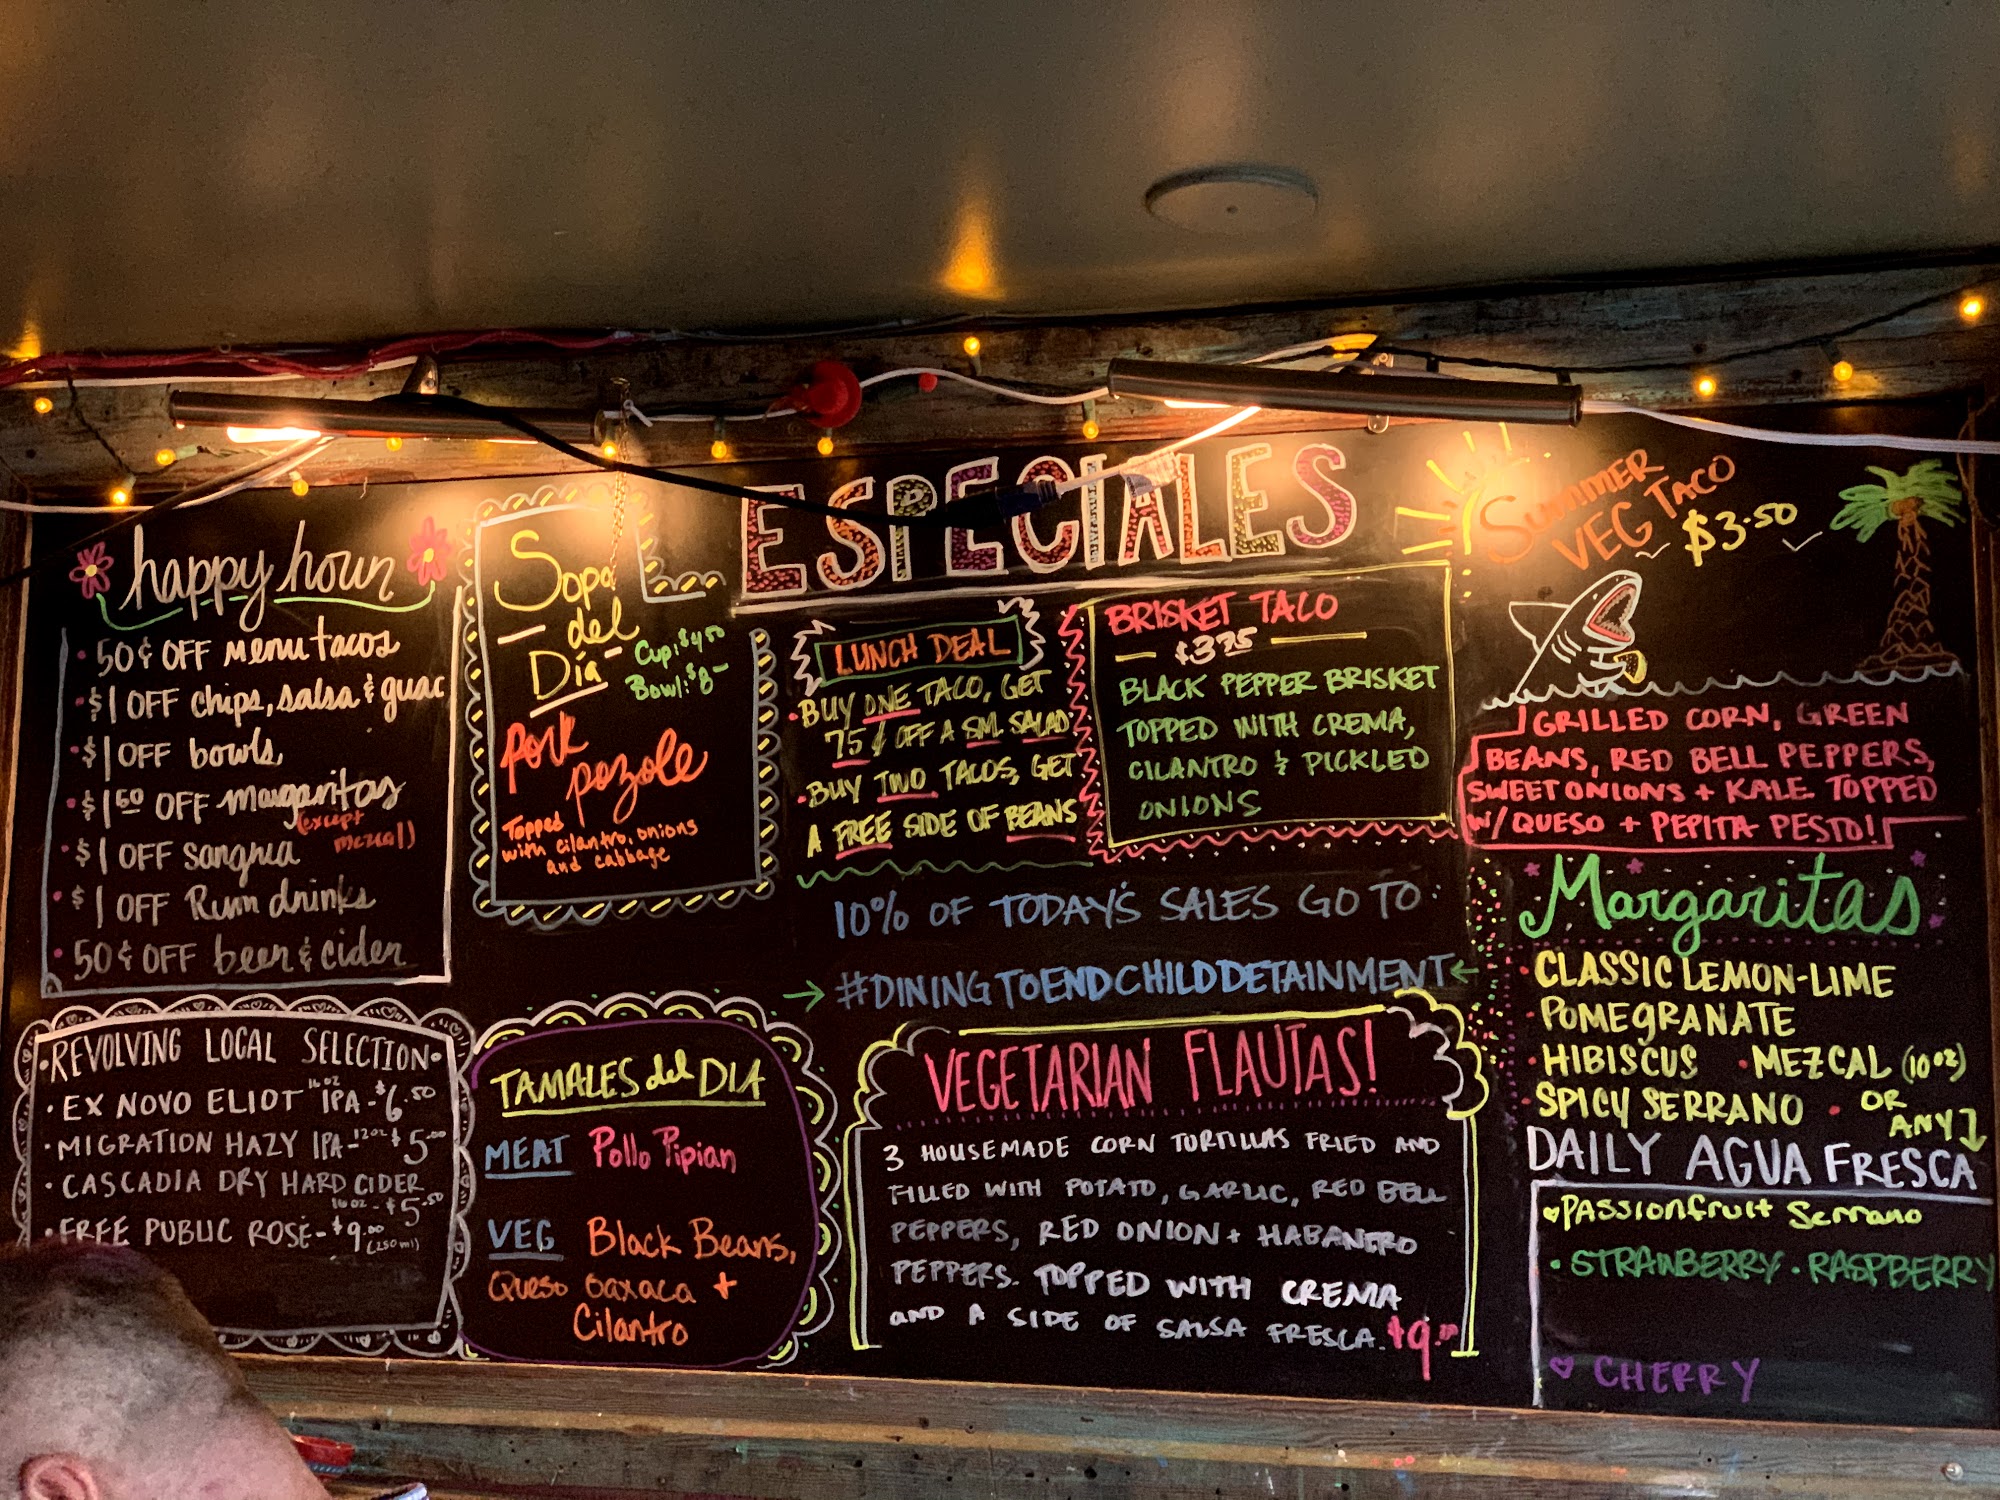 ESPECIALES
happy hour
• 50¢ OFF menu tacos
• $1 OFF chips, salsa & guac
• $1 OFF bowls,
• $1.50 OFF margaritas
(except
mezcal)
• $1 OFF sangria
• $1 OFF Rum drinks
• 50¢ OFF beer & cider
• REVOLVING LOCAL SELECTION •
• EX NOVO ELIOT 16 OZ IPA - $6.50
• MIGRATION HAZY IPA - 12 OZ $5.00
• CASCADIA DRY HARD CIDER
16 OZ - $5.50
• FREE PUBLIC ROSÉ - $9.00
(250 ml)
Sopa
del
Día
Cup: $4.50
Bowl: $8-
Pork
pozole
Topped
with cilantro, onions
and cabbage
TAMALES del DIA
MEAT Pollo Pipian
VEG Black Beans,
Queso Oaxaca +
Cilantro
LUNCH DEAL
• BUY ONE TACO, GET
75¢ OFF A SM. SALAD.
• BUY TWO TACOS, GET
A FREE SIDE OF BEANS
BRISKET TACO
— $3.75 —
BLACK PEPPER BRISKET
TOPPED WITH CREMA,
CILANTRO & PICKLED
ONIONS
10% OF TODAY'S SALES GO TO:
→ #DININGTOENDCHILDDETAINMENT ←
VEGETARIAN FLAUTAS!
3 HOUSEMADE CORN TORTILLAS FRIED AND
FILLED WITH POTATO, GARLIC, RED BELL
PEPPERS, RED ONION + HABANERO
PEPPERS. TOPPED WITH CREMA
AND A SIDE OF SALSA FRESCA. $9.50
SUMMER
VEG TACO
$3.50
GRILLED CORN, GREEN
BEANS, RED BELL PEPPERS,
SWEET ONIONS + KALE TOPPED
W/ QUESO + PEPITA PESTO!
Margaritas
• CLASSIC LEMON-LIME
• POMEGRANATE
• HIBISCUS • MEZCAL (10 oz)
• SPICY SERRANO • OR
ANY
DAILY AGUA FRESCA
PASSIONfruit Serrano
• STRAWBERRY • RASPBERRY
CHERRY